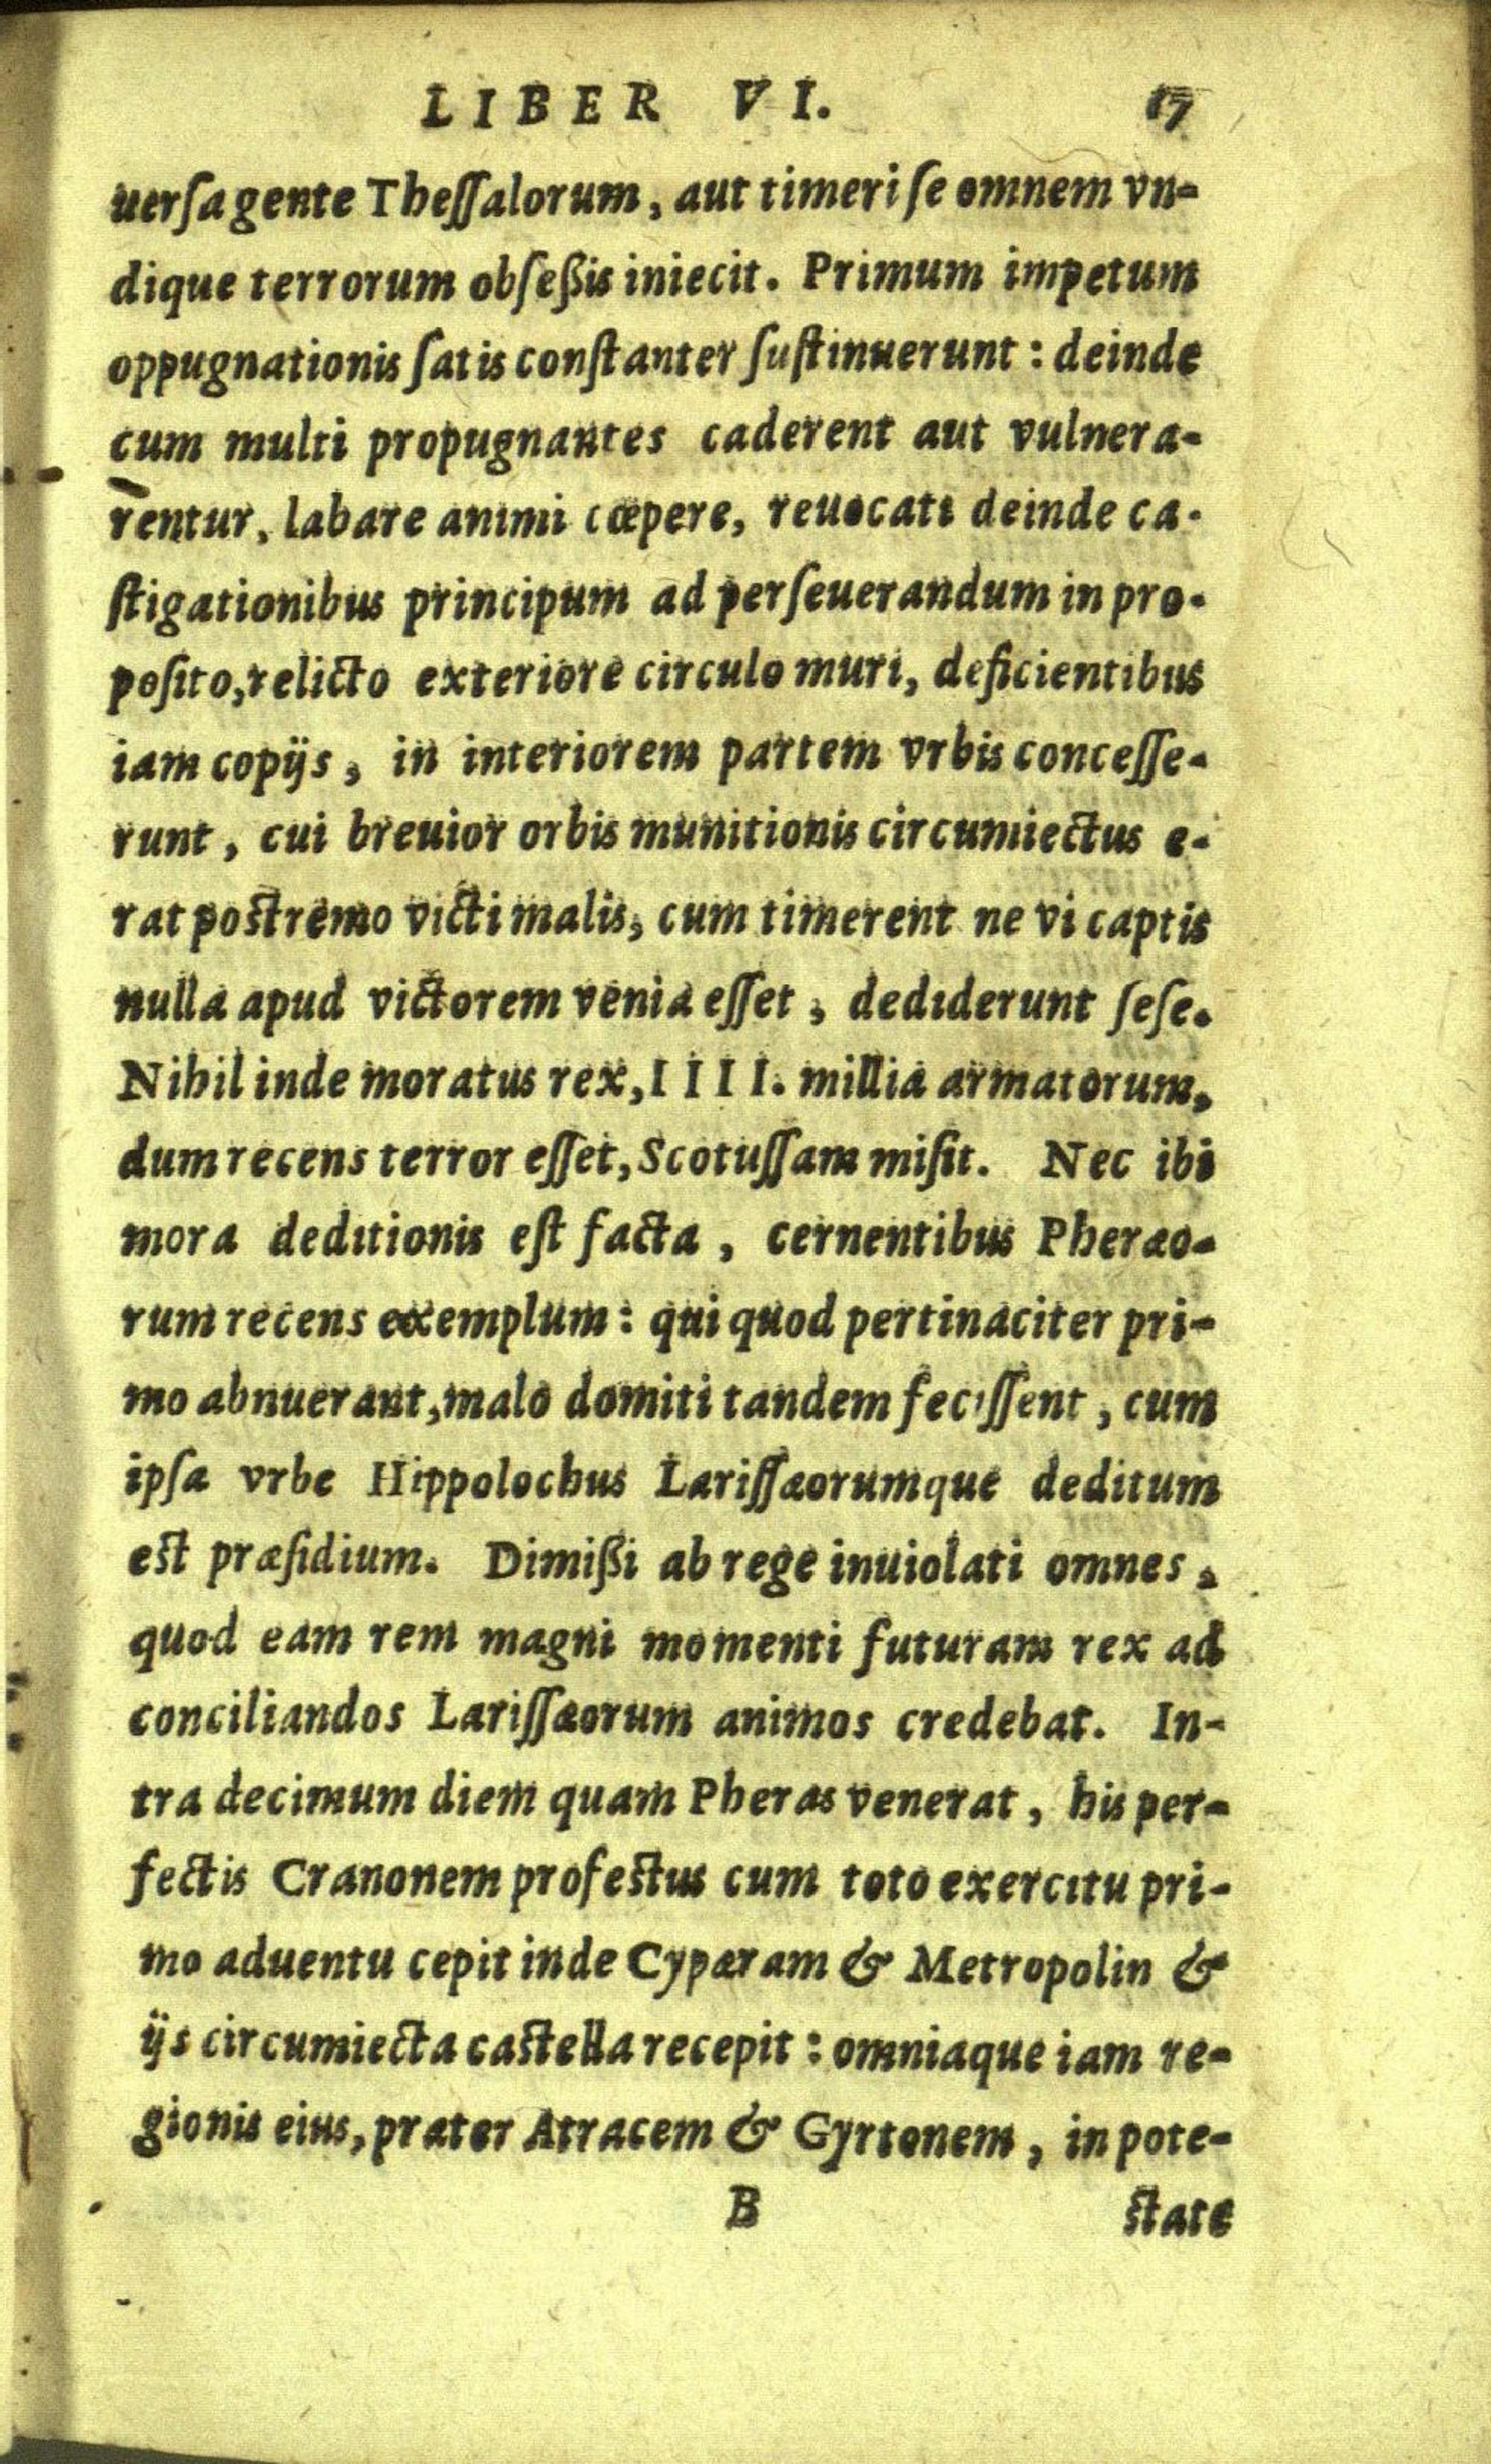 LIBER VI. 17
uersa gente Thessalorum, aut timeri se omnem vn-
dique terrorum obseßis iniecit. Primum impetum
oppugnationis satis constanter sustinuerunt : deinde
cum multi propugnantes caderent aut vulnera-
rentur, labare animi cœpere, reuocati deinde ca-
stigationibus principum ad perseuerandum in pro-
posito, relicto exteriore circulo muri, deficientibus
iam copijs, in interiorem partem vrbis concesse-
runt, cui breuior orbis munitionis circumiectus e-
rat postremo victi malis, cum timerent ne vi captis
nulla apud victorem venia esset, dediderunt sese.
Nihil inde moratus rex, IIII. millia armatorum,
dum recens terror esset, Scotussam misit. Nec ibi
mora deditionis est facta, cernentibus Pheræo-
rum recens exemplum : qui quod pertinaciter pri-
mo abnuerant, malo domiti tandem fecissent, cum
ipsa vrbe Hippolochus Larissæorumque deditum
est præsidium. Dimißi ab rege inuiolati omnes,
quod eam rem magni momenti futuram rex ad
conciliandos Larissæorum animos credebat. In-
tra decimum diem quam Pheras venerat, his per-
fectis Cranonem profectus cum toto exercitu pri-
mo aduentu cepit inde Cypæram & Metropolin &
ijs circumiecta castella recepit : omniaque iam re-
gionis eius, præter Atracem & Gyrtonem, in pote-
B state